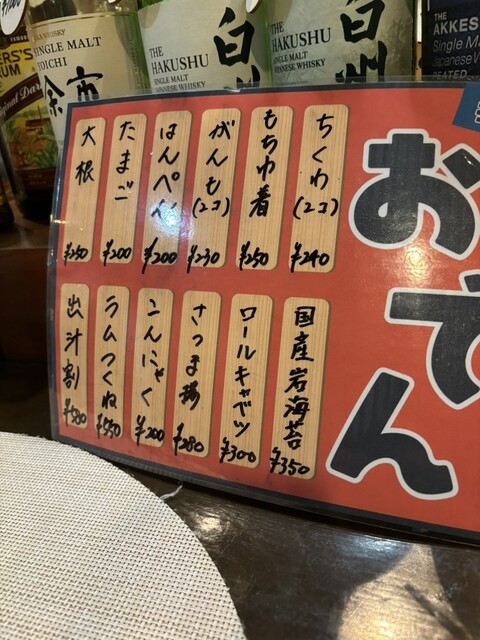 THE
HAKUSHU
SINGLE MALT
JAPANESE WHISKY
白州
THE
HAKUSHU
SINGLE MALT
JAPANESE WHISKY
白州
SINGLE MALT
余市
THE
AKKES
Single Ma
Japanese W
PEATED
おでん
ちくわ(2コ) ¥240
もち巾着 ¥250
がんも(2コ) ¥230
はんぺん ¥200
たまご ¥200
大根 ¥250
国産岩海苔 ¥350
ロールキャベツ ¥300
さつま揚 ¥280
こんにゃく ¥200
ラムつくね ¥550
出汁割 ¥500